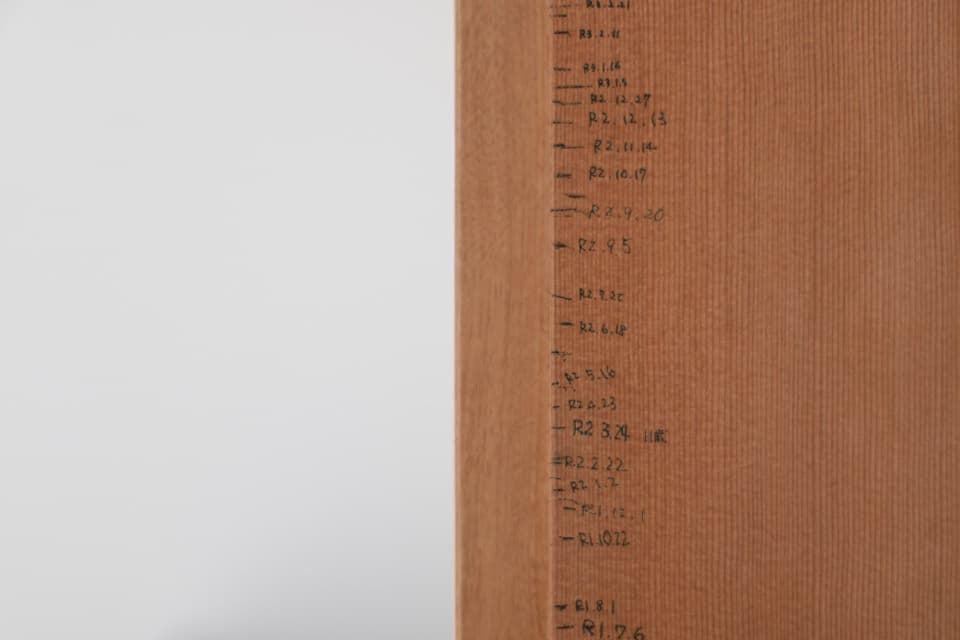 R3.2.11
R3.1.16
R3.1.5
R2.12.27
R2.12.13
R2.11.14
R2.10.17
R2.9.20
R2.9.5
R2.6.18
R2.5.16
R2.4.23
R2 3.24 11歳
R2.2.22
R2.1.2
R1.12.1
R1.10.22
R1.8.1
R1.7.6